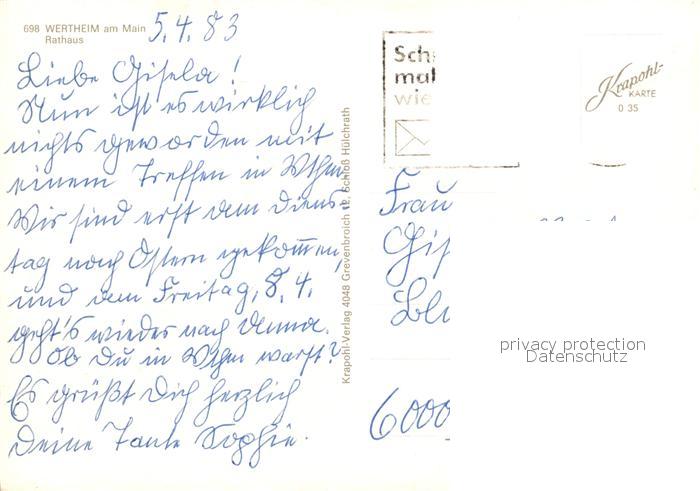 698 WERTHEIM am Main
Rathaus
5.4.83
Liebe Gisela!
Nun ist es wirklich
nichts geworden mit
einem Treffen in Wthm.
Wir sind erst am Diens-
tag nach Ostern gekommen,
und am Freitag, 8.4.
geht's wieder nach
Ob Du in Wthm warst?
Es grüßt Dich herzlich
Deine Tante Sophie.
Krapohl-Verlag 4048 Grevenbroich 12, Schloß Hülchrath
Sch
mal
wie
Krapohl-
KARTE
0 35
Frau
Gis
6000
privacy protection
Datenschutz